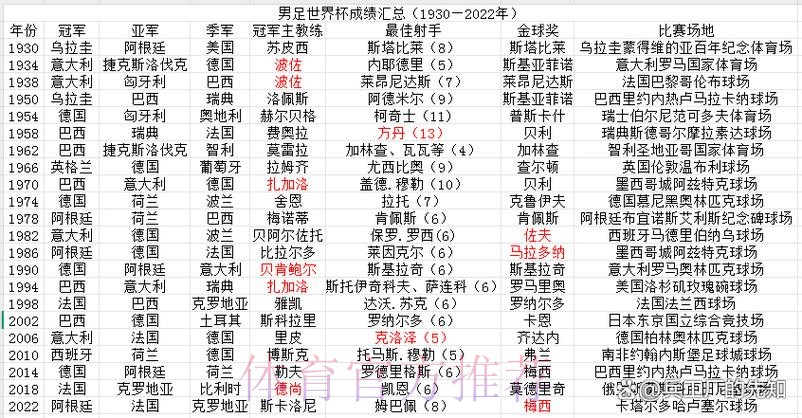 男足世界杯成绩汇总（1930—2022年）
年份 冠军 亚军 季军 冠军主教练 最佳射手 金球奖 比赛场地
1930 乌拉圭 阿根廷 美国 苏皮西 斯塔比莱（8） 斯塔比莱 乌拉圭蒙得维的亚百年纪念体育场
1934 意大利 捷克斯洛伐克 德国 波佐 内耶德里（5） 斯基亚菲诺 意大利罗马国家体育场
1938 意大利 匈牙利 巴西 波佐 莱昂尼达斯（7） 莱昂尼达斯 法国巴黎哥伦布球场
1950 乌拉圭 巴西 瑞典 洛佩斯 阿德米尔（9） 斯基亚菲诺 巴西里约内热卢马拉卡纳球场
1954 德国 匈牙利 奥地利 赫尔贝格 柯奇士（11） 普斯卡什 瑞士伯尔尼范可多夫体育场
1958 巴西 瑞典 法国 费奥拉 方丹（13） 贝利 瑞典斯德哥尔摩拉素达球场
1962 巴西 捷克斯洛伐克 智利 莫雷拉 加林查、瓦瓦等（4） 加林查 智利圣地亚哥国家体育场
1966 英格兰 德国 葡萄牙 拉姆齐 尤西比奥（9） 查尔顿 英国伦敦温布利球场
1970 巴西 意大利 德国 扎加洛 盖德.穆勒（10） 贝利 墨西哥城阿兹特克球场
1974 德国 荷兰 波兰 舍恩 拉托（7） 克鲁伊夫 德国慕尼黑奥林匹克球场
1978 阿根廷 荷兰 巴西 梅诺蒂 肯佩斯（6） 肯佩斯 阿根廷布宜诺斯艾利斯纪念碑球场
1982 意大利 德国 波兰 贝阿尔佐托 保罗.罗西(6) 佐夫 西班牙马德里伯纳乌球场
1986 阿根廷 德国 法国 比拉尔多 莱因克尔（6） 马拉多纳 墨西哥城阿兹特克球场
1990 德国 阿根廷 意大利 贝肯鲍尔 斯基拉奇（6） 斯基拉奇 意大利罗马奥林匹克球场
1994 巴西 意大利 瑞典 扎加洛 斯托伊奇科夫、萨连科（6） 罗马里奥 美国洛杉矶玫瑰碗球场
1998 法国 巴西 克罗地亚 雅凯 达沃.苏克（6） 罗纳尔多 法国法兰西球场
2002 巴西 德国 土耳其 斯科拉里 罗纳尔多（6） 卡恩 日本东京国立综合竞技场
2006 意大利 法国 德国 里皮 克洛泽（5） 齐达内 德国柏林奥林匹克球场
2010 西班牙 荷兰 德国 博斯克 托马斯.穆勒(5) 弗兰 南非约翰内斯堡足球城球场
2014 德国 阿根廷 荷兰 勒夫 罗德里格斯（6） 梅西 巴西里约内热卢马拉卡纳球场
2018 法国 克罗地亚 比利时 德尚 凯恩（6） 莫德里奇
2022 阿根廷 法国 克罗地亚 斯卡洛尼 姆巴佩（8） 梅西 卡塔尔多哈卢塞尔球场
体育官方推荐